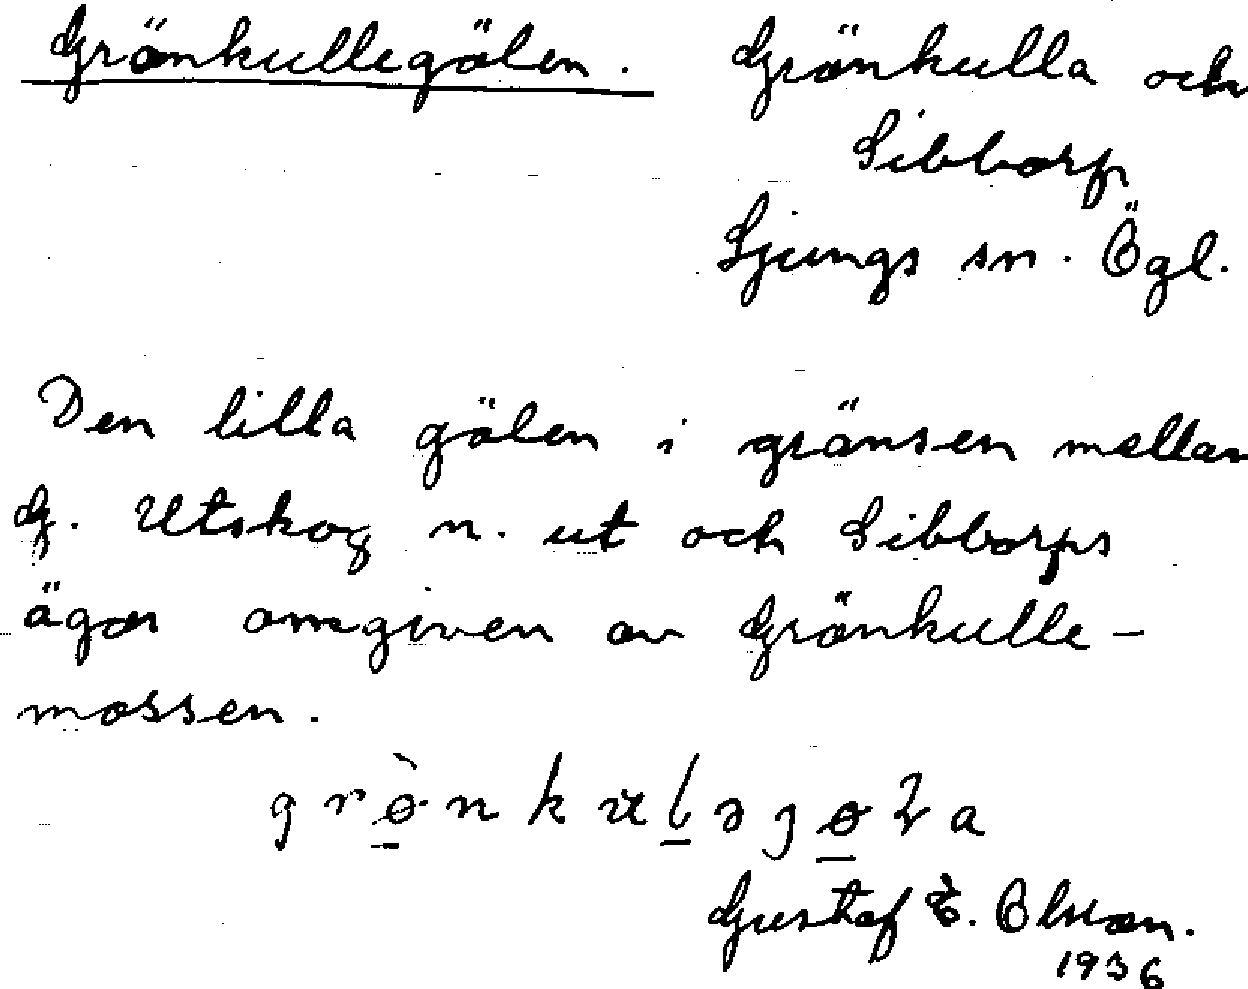 Grönkullegölen. Grönkulla och
Sibborp
Ljungs sn. Ögl.
Den lilla gölen i gränsen mellan
G. Utskog n. ut och Sibborps
ägor omgiven av Grönkulle-
mossen.
Gustaf E. Olsson.
1936